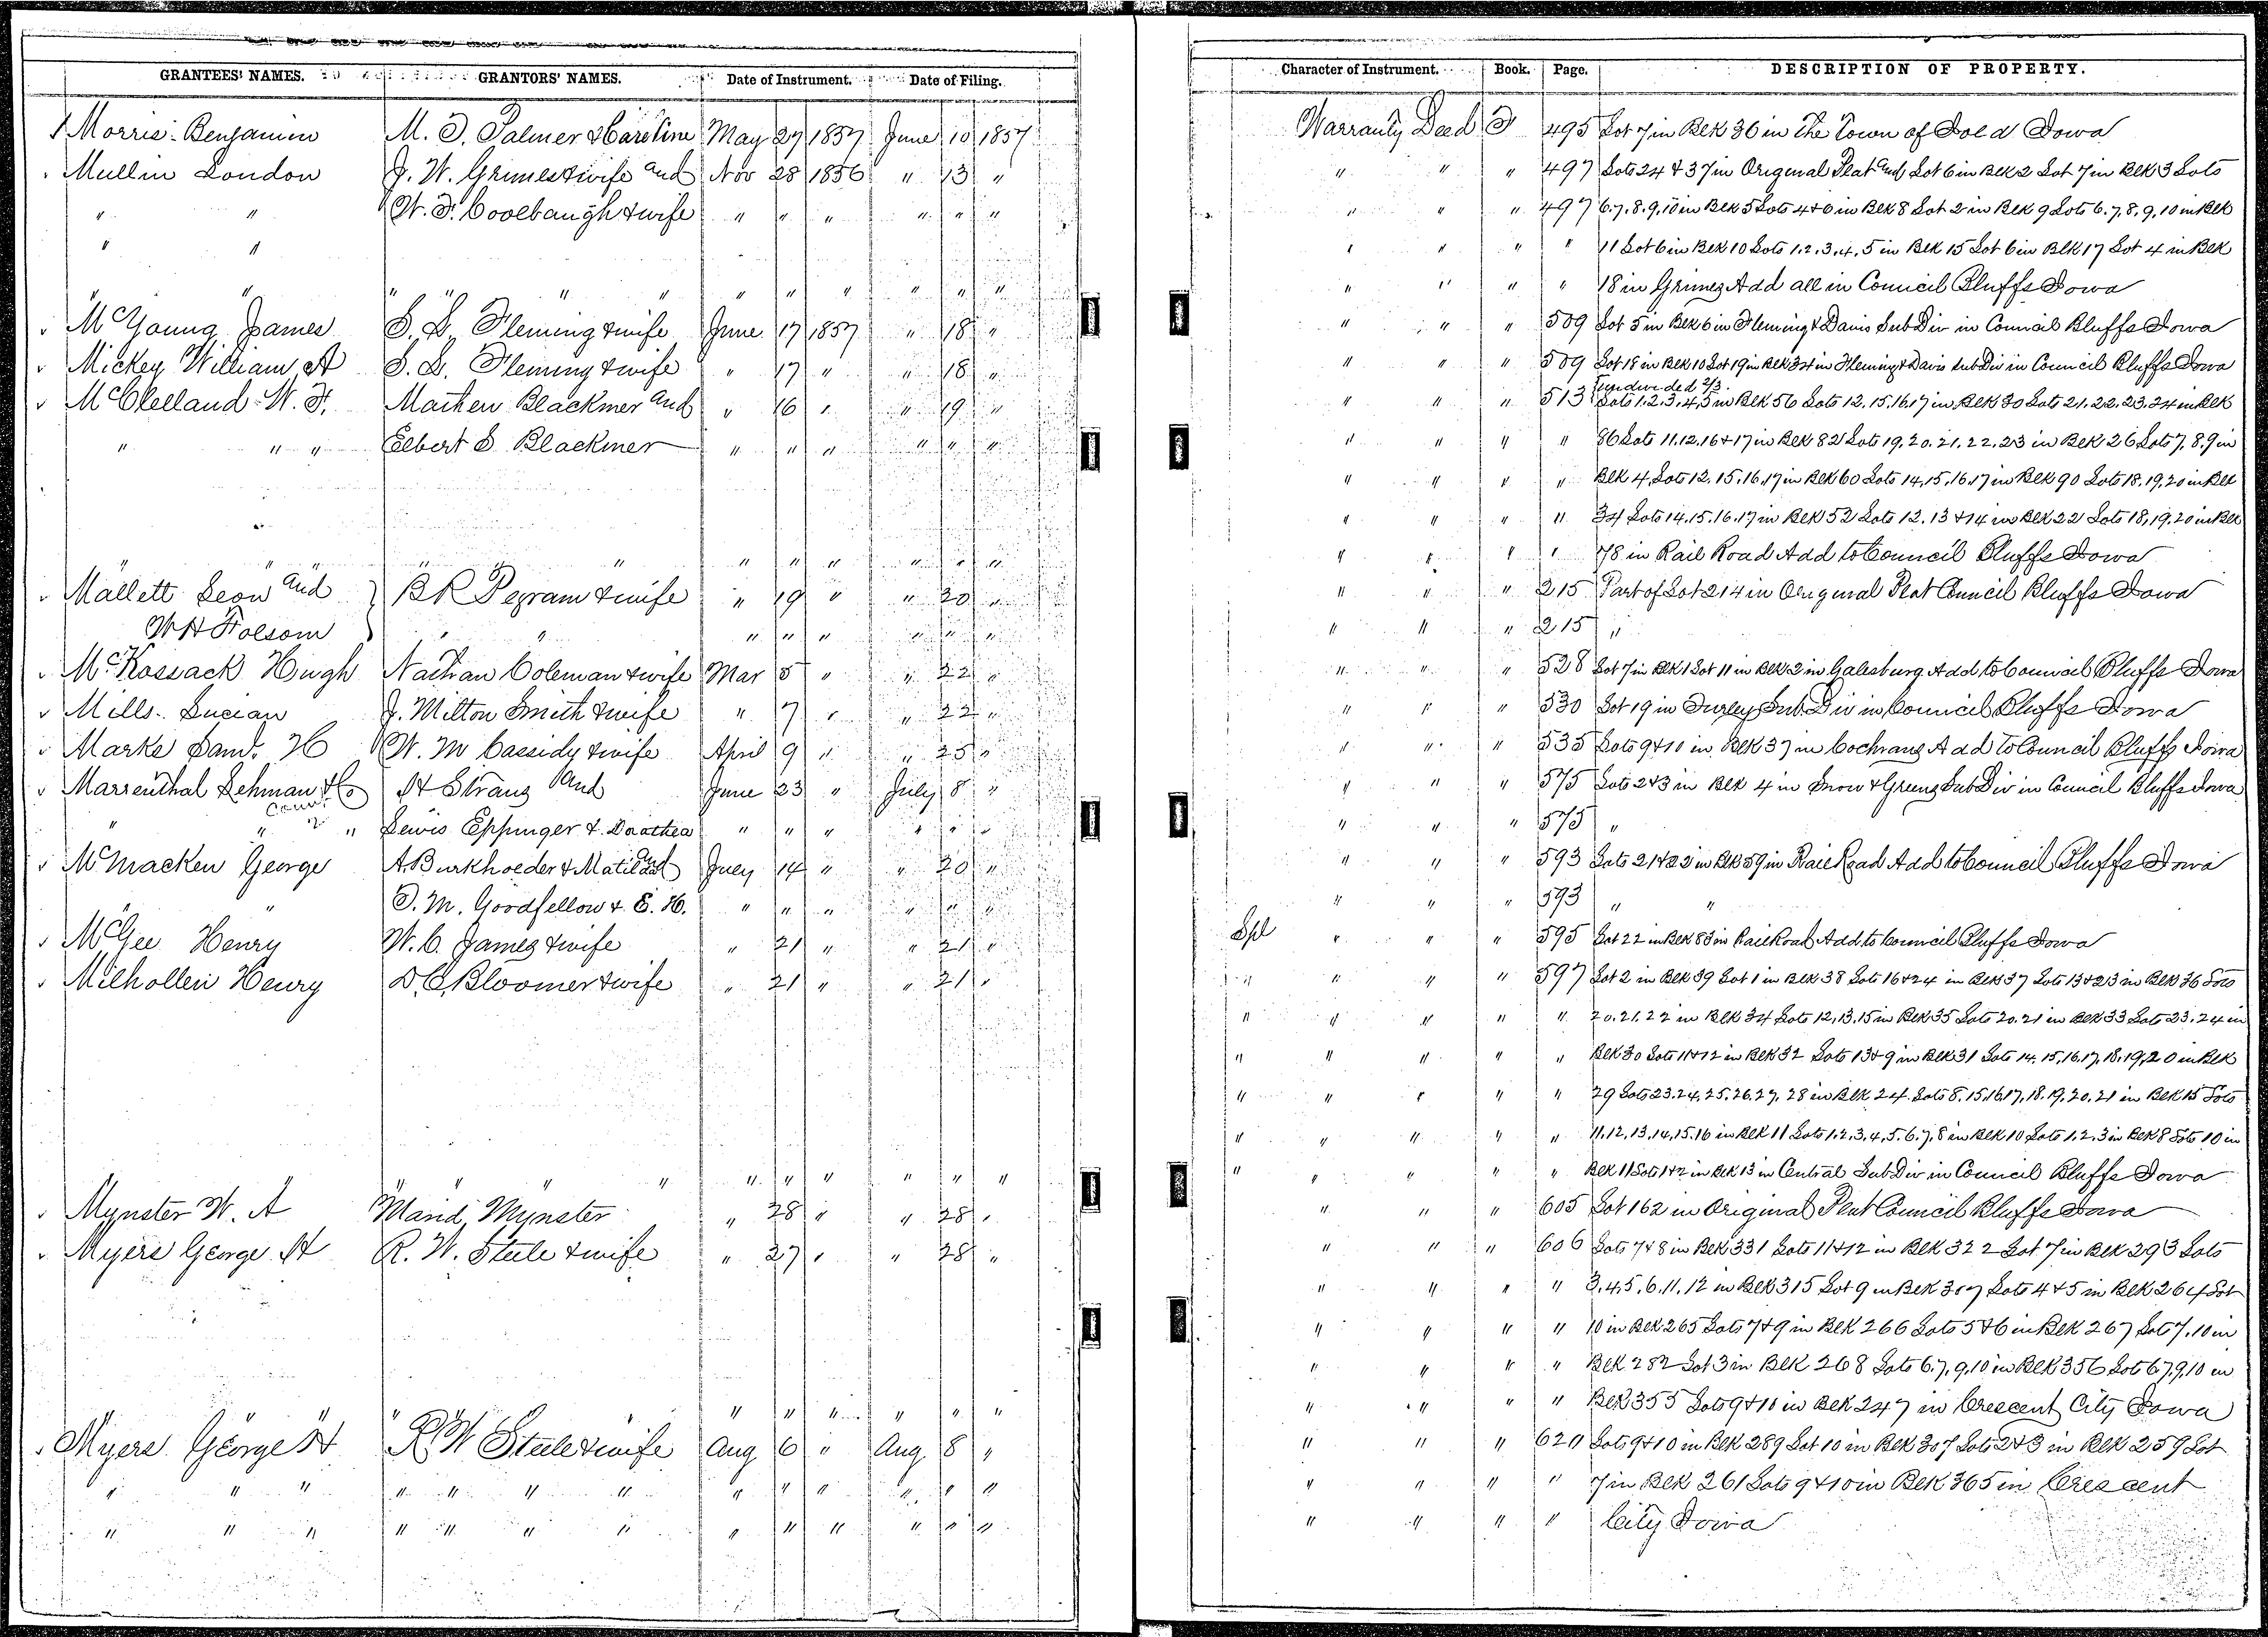 GRANTEES' NAMES. GRANTORS' NAMES. Date of Instrument. Date of Filing. Character of Instrument. Book. Page. DESCRIPTION OF PROPERTY.
Morris Benjamin M. D. Palmer & Caroline May 27 1857 June 10 1857 Warranty Deed 495 Lot 7 in Blk 36 in The Town of Iowa
Mullin London J. W. Grimes & wife and Nov 28 1856 " 13 " " " " 497 Lots 24 & 37 in Original Plat and Lot 6 in Blk 2 Lot 7 in Blk 3 Lots
" " W. F. Coolbaugh & wife " " " " " " " " " 497 6.7.8.9.10 in Blk 5 Lots 4 & 6 in Blk 8 Lot 2 in Blk 9 Lots 6.7.8.9.10 in Blk
" " " " " " 11 Lot 6 in Blk 10 Lots 1.2.3.4.5 in Blk 15 Lot 6 in Blk 17 Lot 4 in Blk
" " " " " " " " " " " " " " " 18 in Grimes Add all in Council Bluffs Iowa
McYoung James S. L. Fleming & wife June 17 1857 " 18 " " " " 509 Lot 5 in Blk 6 in Fleming & Davis Sub Div in Council Bluffs Iowa
Mickey William A S. L. Fleming & wife " 17 " " 18 " " " " 509 Lot 18 in Blk 10 Lot 19 in Blk 34 in Fleming & Davis Sub Div in Council Bluffs Iowa
undivided 2/3
McClelland W. F. Mathew Blackmer and " 16 " " 19 " " " " 513 Lots 1.2.3.4.5 in Blk 56 Lots 12.15.16.17 in Blk 30 Lots 21.22.23.24 in Blk
" " " Elbert S Blackmer " " " " " " " " " " 86 Lots 11.12.16 & 17 in Blk 82 Lots 19.20.21.22.23 in Blk 26 Lots 7.8.9 in
" " " " Blk 4 Lots 12.15.16.17 in Blk 60 Lots 14.15.16.17 in Blk 90 Lots 18.19.20 in Blk
" " " " 34 Lots 14.15.16.17 in Blk 52 Lots 12.13 & 14 in Blk 22 Lots 18.19.20 in Blk
" " " " " " " " " " " " " " " " 78 in Rail Road Add to Council Bluffs Iowa
Mallett Leon and B R Pegram & wife " 19 " " 20 " " " " 215 Part of Lot 214 in Original Plat Council Bluffs Iowa
W H Folsom " " " " " " " " " " " 215 "
McKossack Hugh Nathan Coleman & wife Mar 5 " " 22 " " " " 528 Lot 7 in Blk 1 Lot 11 in Blk 2 in Galesburg Add to Council Bluffs Iowa
Mills Lucian J. Milton Smith & wife " 7 " " 22 " " " " 530 Lot 19 in Turley Sub Div in Council Bluffs Iowa
Marks Saml. H W. M Cassidy & wife April 9 " " 25 " " " " 535 Lots 9 & 10 in Blk 37 in Cochrans Add to Council Bluffs Iowa
Marsenthal Lehman & Co H Straus and June 23 " July 8 " " " " 575 Lots 2 & 3 in Blk 4 in Snow & Greens Sub Div in Council Bluffs Iowa
" " " Lewis Eppinger & Dorathea " " " " " " " " " 575 "
McMacken George A Burkholder & Matilda and July 14 " " 20 " " " " 593 Lots 21 & 22 in Blk 59 in Rail Road Add to Council Bluffs Iowa
" " T. M. Goodfellow & E. H. " " " " " " " " " 593 " "
McGee Henry W. C. James & wife " 21 " " 21 " Spl " " " 595 Lot 22 in Blk 83 in Rail Road Add to Council Bluffs Iowa
Milhollen Henry D C Bloomer & wife " 21 " " 21 " " " " " 597 Lot 2 in Blk 39 Lot 1 in Blk 38 Lots 16 & 24 in Blk 37 Lots 13 & 23 in Blk 36 Lots
" " " " " 20.21.22 in Blk 34 Lots 12.13.15 in Blk 35 Lots 20.21 in Blk 33 Lots 23.24 in
" " " " " Blk 30 Lots 11 & 12 in Blk 32 Lots 13 & 9 in Blk 31 Lots 14.15.16.17.18.19.20 in Blk
" " " " " 29 Lots 23.24.25.26.27.28 in Blk 24 Lots 8.15.16.17.18.19.20.21 in Blk 15 Lots
" " " " " 11.12.13.14.15.16 in Blk 11 Lots 1.2.3.4.5.6.7.8 in Blk 10 Lots 1.2.3 in Blk 8 Lots 10 in
" " " " " " " " " " " " " " " Blk 11 Lots 1 & 2 in Blk 13 in Central Sub Div in Council Bluffs Iowa
Mynster W. A Maria Mynster " 28 " " 28 " " " " 605 Lot 162 in Original Plat Council Bluffs Iowa
Myers George H R. W. Steele & wife " 27 " " 28 " " " " 606 Lots 7 & 8 in Blk 331 Lots 11 & 12 in Blk 322 Lot 7 in Blk 293 Lots
" " " " 3.4.5.6.11.12 in Blk 315 Lot 9 in Blk 307 Lots 4 & 5 in Blk 264 Lot
" " " " 10 in Blk 265 Lots 7 & 9 in Blk 266 Lots 5 & 6 in Blk 267 Lots 7.10 in
" " " " Blk 282 Lot 3 in Blk 268 Lots 6.7.9.10 in Blk 356 Lots 6.7.9.10 in
" " " " " " " " " " " " " " Blk 355 Lots 9 & 10 in Blk 247 in Crescent City Iowa
Myers George H R W Steele & wife Aug 6 " Aug 8 " " " " 620 Lots 9 & 10 in Blk 289 Lot 10 in Blk 307 Lots 2 & 3 in Blk 259 Lot
" " " " " " " " " " " " " " " " " 7 in Blk 261 Lots 9 & 10 in Blk 365 in Crescent
" " " " " " " " " " " " " " " " " City Iowa